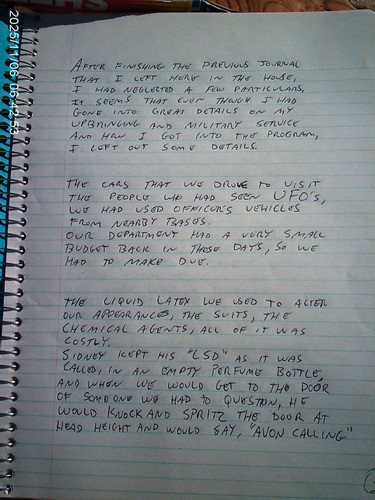 2025/11/06 06:42:53
AFTER FINISHING THE PREVIOUS JOURNAL
THAT I LEFT HERE IN THE HOUSE,
I HAD NEGLECTED A FEW PARTICULARS,
IT SEEMS THAT EVEN THOUGH I HAD
GONE INTO GREAT DETAILS ON MY
UPBRINGING AND MILITARY SERVICE
AND HOW I GOT INTO THE PROGRAM,
I LEFT OUT SOME DETAILS.
THE CARS THAT WE DROVE TO VISIT
THE PEOPLE WHO HAD SEEN UFO'S,
WE HAD USED OFFICER'S VEHICLES
FROM NEARBY BASES.
OUR DEPARTMENT HAD A VERY SMALL
BUDGET BACK IN THOSE DAYS, SO WE
HAD TO MAKE DUE.
THE LIQUID LATEX WE USED TO ALTER
OUR APPEARANCES, THE SUITS, THE
CHEMICAL AGENTS, ALL OF IT WAS
COSTLY.
SIDNEY KEPT HIS "LSD" AS IT WAS
CALLED, IN AN EMPTY PERFUME BOTTLE,
AND WHEN WE WOULD GET TO THE DOOR
OF SOMEONE WE HAD TO QUESTION, HE
WOULD KNOCK AND SPRITZ THE DOOR AT
HEAD HEIGHT AND WOULD SAY, "AVON CALLING"